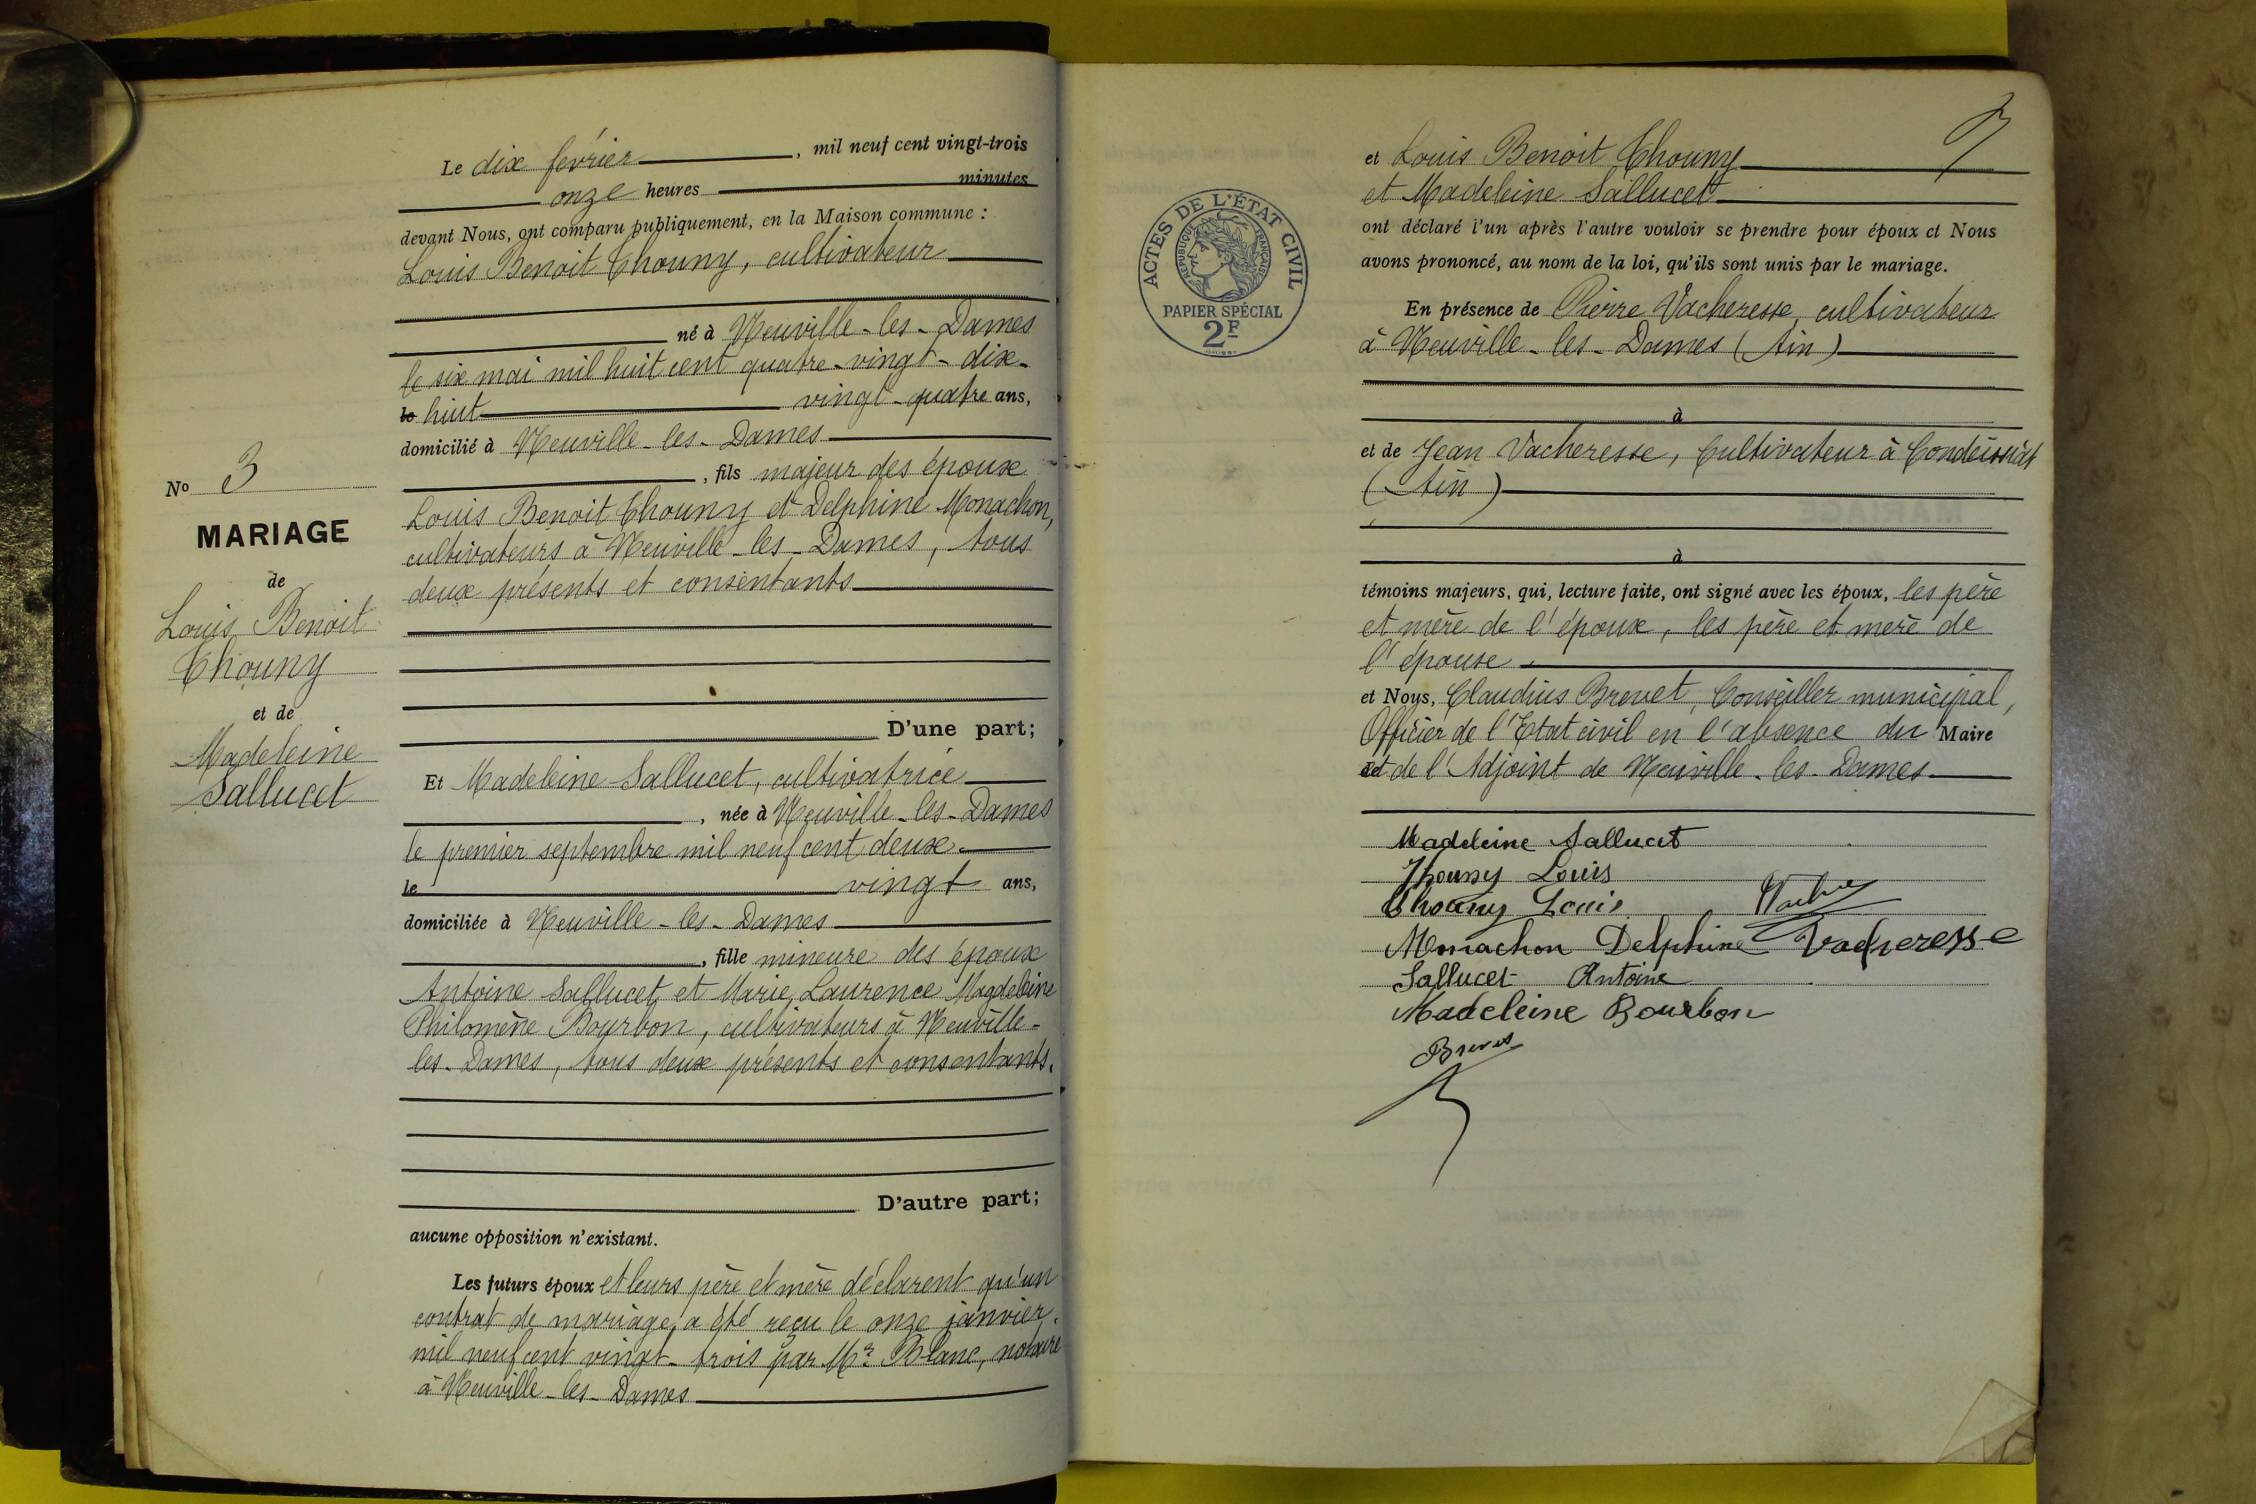 Le dix février, mil neuf cent vingt-trois
onze heures minutes
devant Nous, ont comparu publiquement, en la Maison commune :
Louis Benoit Thouny, cultivateur
né à Neuville-les-Dames
le six mai mil huit cent quatre-vingt-dix-
le huit vingt-quatre ans,
domicilié à Neuville-les-Dames
, fils majeur des époux
Louis Benoit Thouny et Delphine Monachon,
cultivateurs à Neuville-les-Dames, tous
deux présents et consentants
D'une part;
No 3
MARIAGE
de
Louis Benoit
Thouny
et de
Madeleine
Sallucet
Et Madeleine Sallucet, cultivatrice
, née à Neuville-les-Dames
le premier septembre mil neuf cent deux
le vingt ans,
domiciliée à Neuville-les-Dames
, fille mineure des époux
Antoine Sallucet et Marie Laurence Magdeleine
Philomène Bourbon, cultivateurs à Neuville-
les-Dames, tous deux présents et consentants.
D'autre part;
aucune opposition n'existant.
Les futurs époux et leurs père et mère déclarent qu'un
contrat de mariage a été reçu le onze janvier
mil neuf cent vingt-trois par Me Blanc, notaire
à Neuville-les-Dames
ACTES DE L'ÉTAT CIVIL
RÉPUBLIQUE FRANÇAISE
PAPIER SPÉCIAL
2F
et Louis Benoit Thouny
et Madeleine Sallucet
ont déclaré l'un après l'autre vouloir se prendre pour époux et Nous
avons prononcé, au nom de la loi, qu'ils sont unis par le mariage.
En présence de Pierre Vacheresse, cultivateur
à Neuville-les-Dames (Ain)
à
et de Jean Vacheresse, Cultivateur à Condeissiat
(Ain)
à
témoins majeurs, qui, lecture faite, ont signé avec les époux, les père
et mère de l'époux, les père et mère de
l'épouse
et Nous, Claudius Brevet, Conseiller municipal,
Officier de l'Etat civil en l'absence du Maire
et de l'Adjoint de Neuville-les-Dames
Madeleine Sallucet
Thouny Louis
Thouny Louis
Monachon Delphine Vacheresse
Sallucet Antoine
Madeleine Bourbon
Brevet